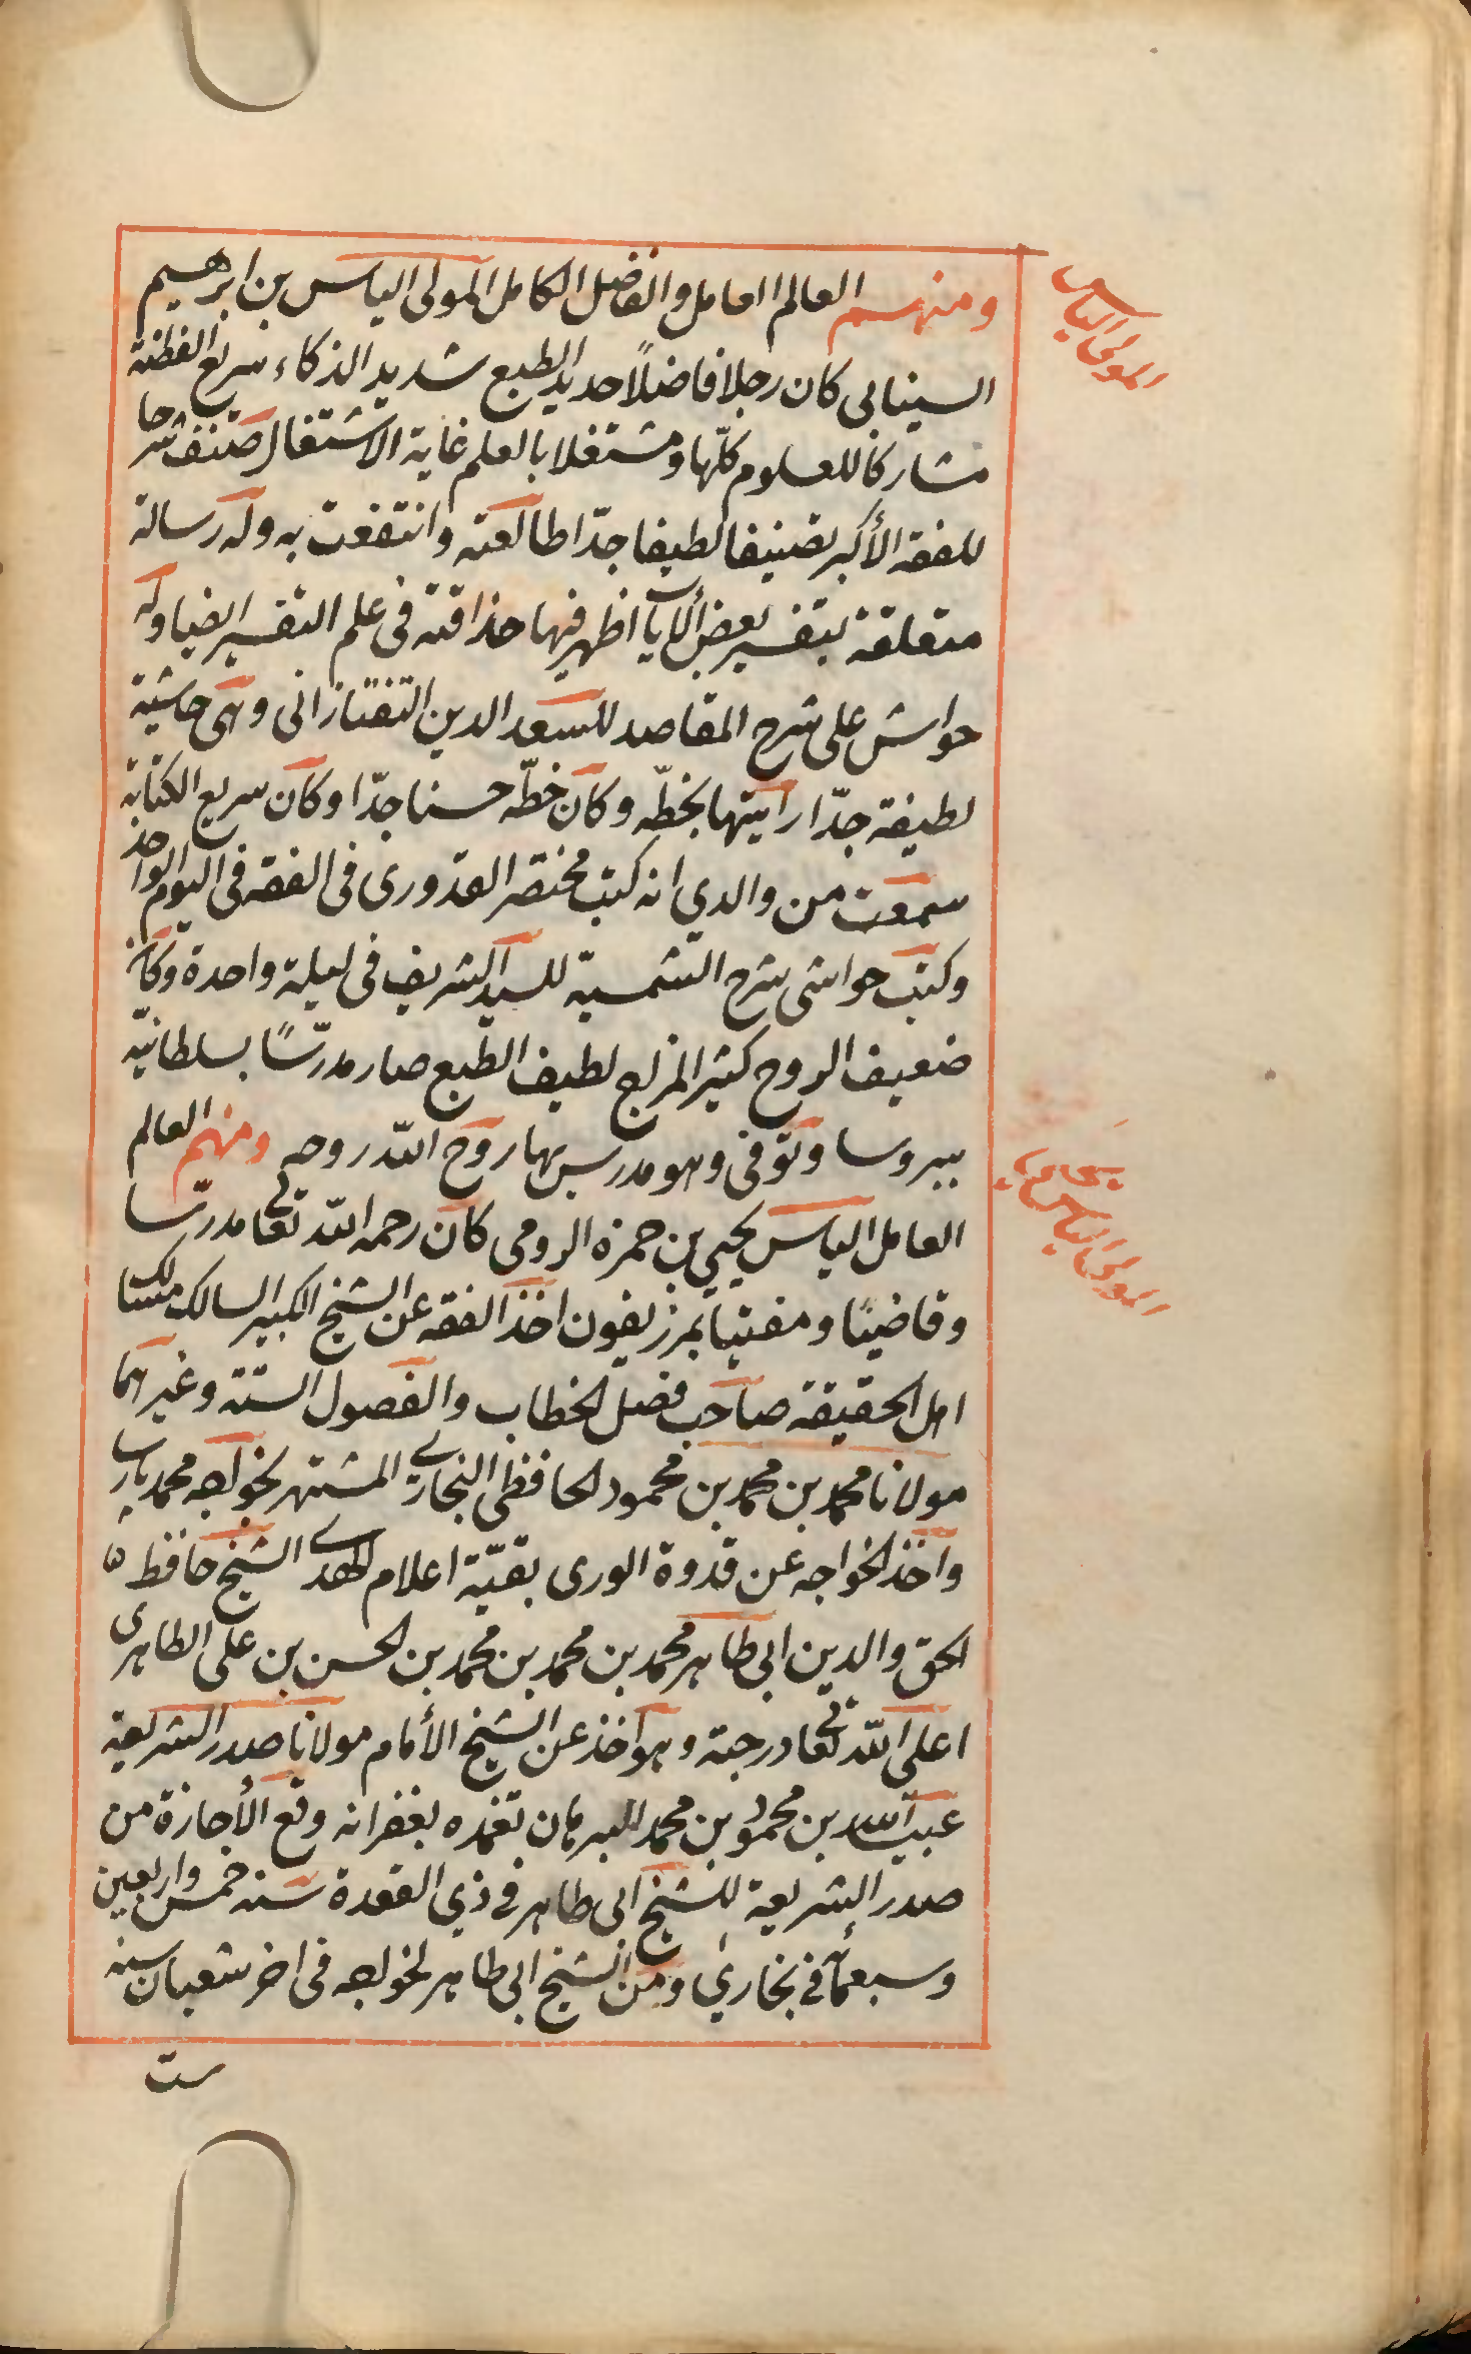 ومنهم العالم العامل والفاضل الكامل المولى الياس بن ابرهيم
المولى الياس
السينابى كان رجلا فاضلاً حديد الطبع شديد الذكاء سريع الفطنة
مشاركا للعلوم كلّها ومشتغلا بالعلم غاية الاشتغال صنف شرحا
للفقه الأكبر تصنيفا لطيفا جدّا طالعته وانتفعت به وله رسالة
متعلقة بتفسير بعض الآيات اظهر فيها حذاقته فى علم التفسير ايضا وله
حواش على شرح المقاصد للسعد الدين التفتازانى وهى حاشية
لطيفة جدّا رايتها بخطّه وكان خطّه حسنا جدّا وكان سريع الكتابة
سمعت من والدي انه كتب مختصر القدورى فى الفقه فى اليوم الواحد
وكتب حواشى شرح الشمسية للسيد الشريف فى ليلة واحدة وكان
ضعيف الروح كثير المزاح لطيف الطبع صار مدرّسًا بسلطانيّة
ببروسا وتوفى وهو مدرس بها روح الله روحه ومنهم العالم
المولى الياس يحيى
العامل الياس يحيى بن حمزه الرومى كان رحمه الله تعا مدرّسا
وقاضيًا ومفتيا بمرزيفون اخذ الفقه عن الشيخ الكبير السالك مسالك
اهل الحقيقة صاحب فصل الخطاب والفصول الستة وغيرهما
مولانا محمد بن محمد بن محمود الحافظى البخاري المشتهر بخواجه محمد پارسا
واخذ الخواجه عن قدوة الورى بقيّة اعلام الهدي الشيخ حافظ
الحق والدين ابى طاهر محمد بن محمد بن محمد بن الحسن بن على الطاهرى
اعلى الله تعا درجته وهو اخذ عن الشيخ الأمام مولانا صدر الشريعة
عبيد الله بن محمود بن محمد البرهان تغمده بغفرانه وقع الأجازة من
صدر الشريعة للشيخ ابى طاهر في ذي القعدة سنه خمس واربعين
وسبعمائة في بخاري ومن الشيخ ابى طاهر لخواجه فى اخر شعبان سنه
ست